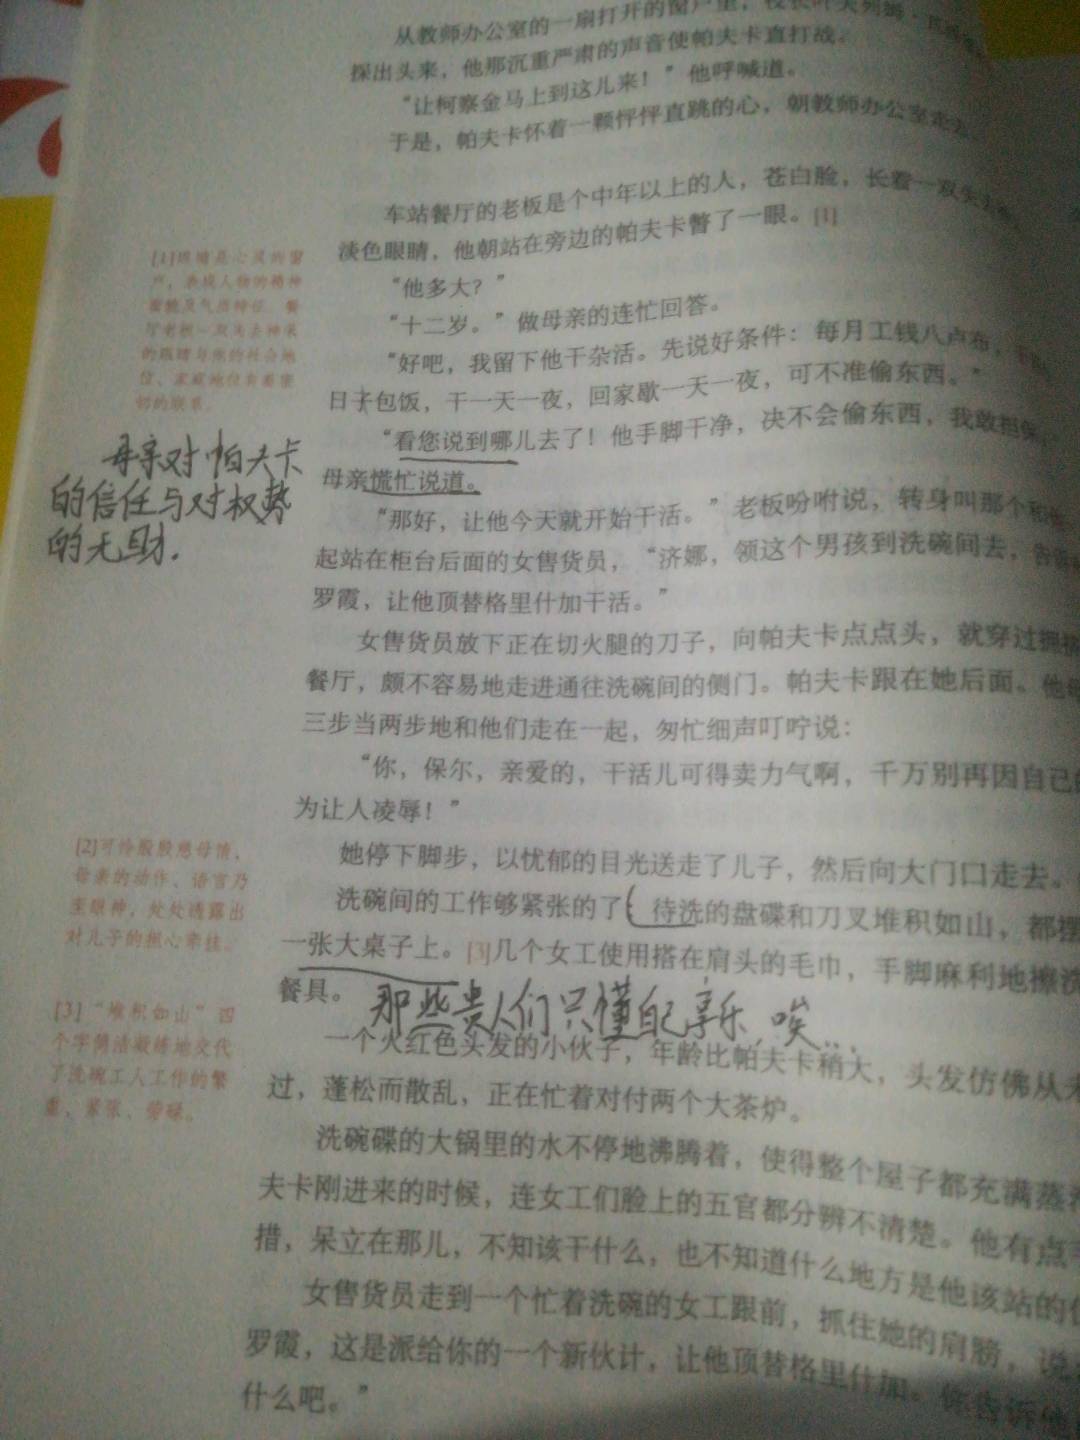 从教师办公室的一扇打开的窗户里，校长叶夫列姆·
探出头来，他那沉重严肃的声音使帕夫卡直打战。
“让柯察金马上到这儿来！”他呼喊道。
于是，帕夫卡怀着一颗怦怦直跳的心，朝教师办公室走去
车站餐厅的老板是个中年以上的人，苍白脸，长着一双失去
淡色眼睛，他朝站在旁边的帕夫卡瞥了一眼。[1]
“他多大？”
“十二岁。”做母亲的连忙回答。
“好吧，我留下他干杂活。先说好条件：每月工钱八卢布，
日子包饭，干一天一夜，回家歇一天一夜，可不准偷东西。”
“看您说到哪儿去了！他手脚干净，决不会偷东西，我敢担保。”
母亲慌忙说道。
“那好，让他今天就开始干活。”老板吩咐说，转身叫那个和他
起站在柜台后面的女售货员，“济娜，领这个男孩到洗碗间去，告诉
罗霞，让他顶替格里什加干活。”
女售货员放下正在切火腿的刀子，向帕夫卡点点头，就穿过拥挤
餐厅，颇不容易地走进通往洗碗间的侧门。帕夫卡跟在她后面。他母
三步当两步地和他们走在一起，匆忙细声叮咛说：
“你，保尔，亲爱的，干活儿可得卖力气啊，千万别再因自己的
为让人凌辱！”
她停下脚步，以忧郁的目光送走了儿子，然后向大门口走去。
洗碗间的工作够紧张的了 待洗的盘碟和刀叉堆积如山，都摆
一张大桌子上。[3]几个女工使用搭在肩头的毛巾，手脚麻利地擦洗
餐具。
那些贵人们只懂自己享乐，唉…
一个火红色头发的小伙子，年龄比帕夫卡稍大，头发仿佛从未
过，蓬松而散乱，正在忙着对付两个大茶炉。
洗碗碟的大锅里的水不停地沸腾着，使得整个屋子都充满蒸汽
夫卡刚进来的时候，连女工们脸上的五官都分辨不清楚。他有点手
措，呆立在那儿，不知该干什么，也不知道什么地方是他该站的位
女售货员走到一个忙着洗碗的女工跟前，抓住她的肩膀，说
罗霞，这是派给你的一个新伙计，让他顶替格里什加。你告诉他
什么吧。”
[1]眼睛是心灵的窗
户，表现人物的精神
面貌及气质特征。餐
厅老板一双失去神采
的眼睛与他的社会地
位、家庭地位有着密
切的联系。
母亲对帕夫卡
的信任与对权势
的无财.
[2]可怜殷殷慈母情，
母亲的动作、语言乃
至眼神，处处透露出
对儿子的担心牵挂。
[3]“堆积如山”四
个字简洁凝练地交代
了洗碗工人工作的繁
重、紧张、劳碌。